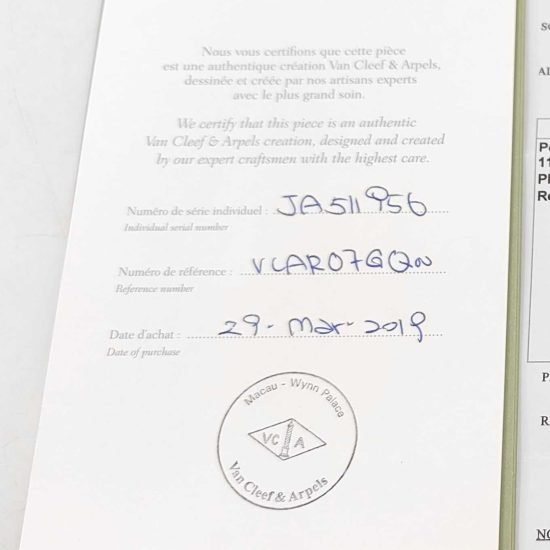 Nous vous certifions que cette pièce
est une authentique création Van Cleef & Arpels,
dessinée et créée par nos artisans experts
avec le plus grand soin.
We certify that this piece is an authentic
Van Cleef & Arpels creation, designed and created
by our expert craftsmen with the highest care.
Numéro de série individuel : JA511956
Individual serial number
Numéro de référence :
Reference number
Date d'achat : 29-Mar-2019
Date of purchase
Macau - Wynn Palace
VC A
Van Cleef & Arpels